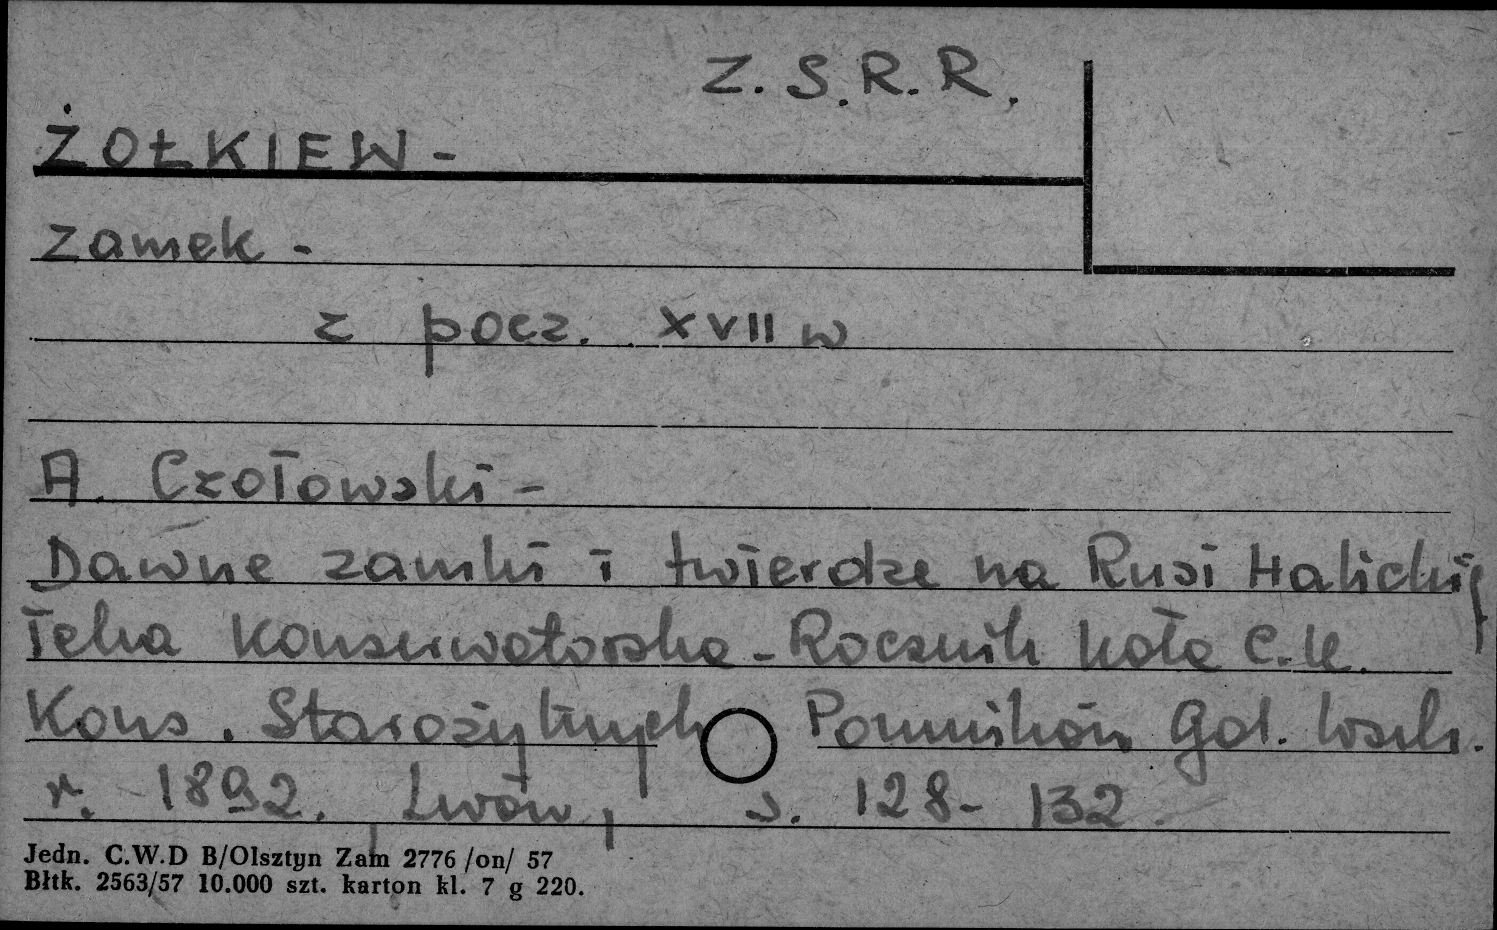 Z.S.R.R.
ŻOŁKIEW -
zamek -
z pocz. XVII w
A. Czołowski -
Dawne zamki i twierdze na Rusi Halickiej
Teka Konserwatorska - Rocznik koła C.K.
Kons. Starożytnych Pomników Gal. Wsch.
r. 1892, Lwów, s. 128-132.
Jedn. C.W.D B/Olsztyn Zam 2776 /on/ 57
Błtk. 2563/57 10.000 szt. karton kl. 7 g 220.